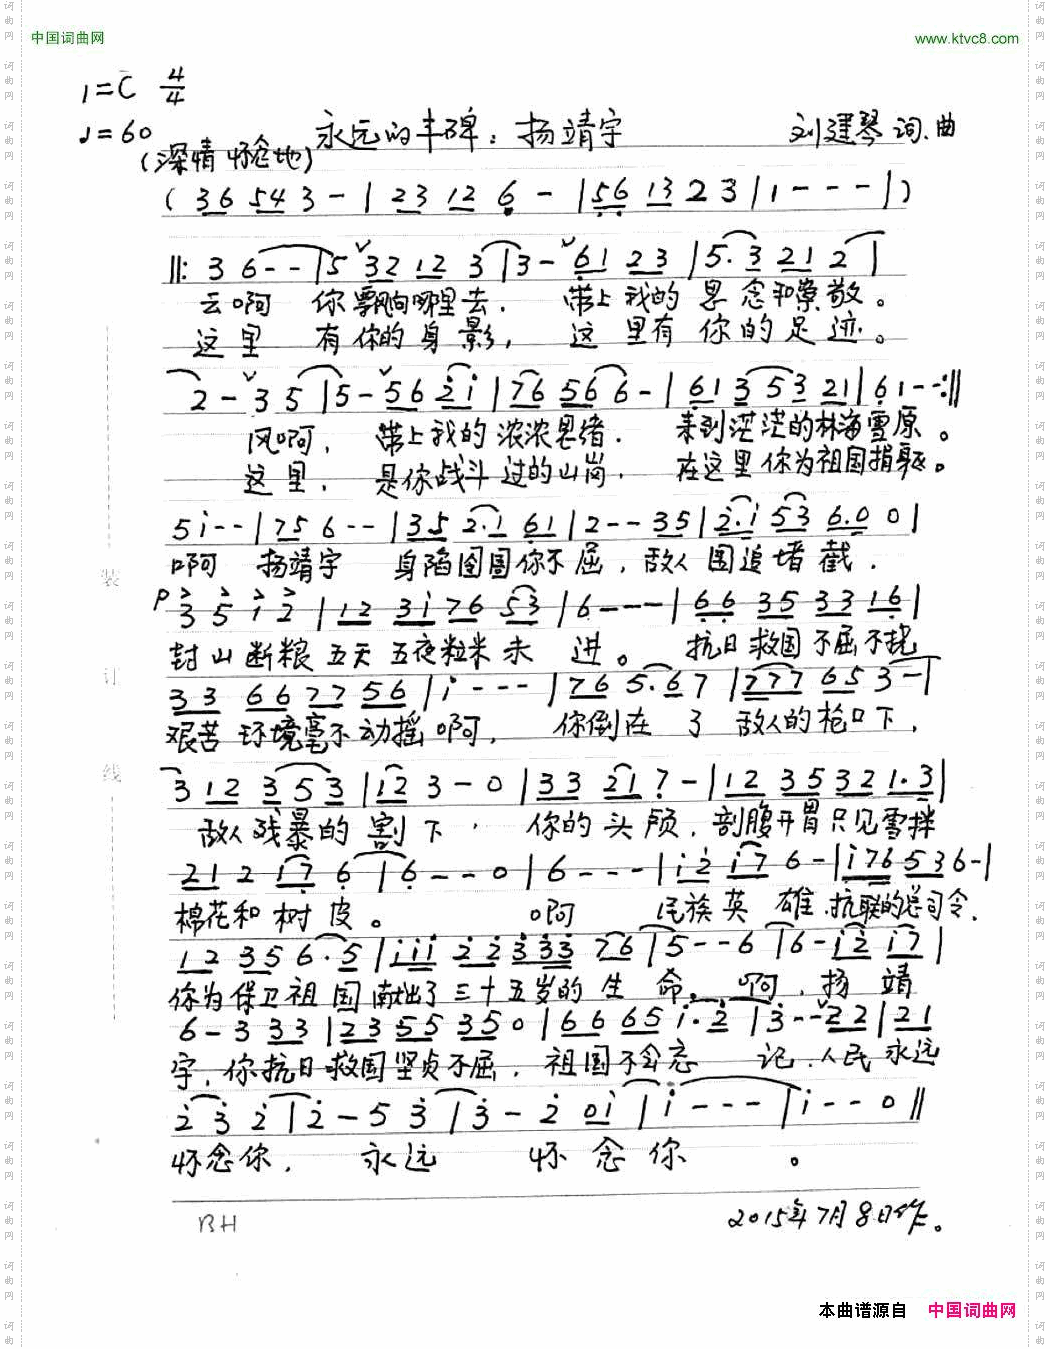 中国词曲网 www.ktvc8.com
1=C 4/4
♩=60 永远的丰碑：杨靖宇 刘建琴 词.曲
(深情怀念地)
( 36 54 3 - | 23 12 6 - | 56 13 2 3 | 1 - - - | )
‖: 3 6 - - | 5 32 12 3 | 3 - 61 23 | 5. 3 21 2 |
云啊 你飘向哪里去. 带上我的思念和崇敬。
这里 有你的身影, 这里有你的足迹。
2 - 3 5 | 5 - 56 2i | 76 56 6 - | 61 3 5 3 21 | 61 - - :‖
风啊, 带上我的浓浓思绪. 来到茫茫的林海雪原。
这里. 是你战斗过的山岗. 在这里你为祖国捐躯。
5 i - - | 75 6 - - | 35 2.1 61 | 2 - - 35 | 2.i 53 6.0 0 |
啊 杨靖宇 身陷囹圄你不屈, 敌人围追堵截.
P 3 5 i 2 | 12 3i 76 53 | 6 - - - | 66 35 33 16 |
封山断粮五天五夜粒米未进。 抗日救国不屈不挠
33 66 77 56 | i - - - | 76 5.6 7 | 777 65 3 - |
艰苦环境毫不动摇啊, 你倒在了敌人的枪口下,
3 12 3 5 3 | 12 3 - 0 | 33 21 7 - | 12 35 32 1.3 |
敌人残暴的割下, 你的头颅, 剖腹开胃只见雪拌
21 2 17 6 | 6 - - 0 | 6 - - - | i2 i7 6 - | i76 536 - |
棉花和树皮。 啊 民族英雄.抗联的总司令.
12 35 6. 5 | iii 22 333 76 | 5 - - 6 | 6 - i2 i7 |
你为保卫祖国献出了三十五岁的生命, 啊, 杨靖
6 - 3 33 | 23 55 35 0 | 66 65 i. 2 | 3 - - 22 | 21
宇, 你抗日救国坚贞不屈. 祖国不会忘记.人民永远
2 3 2 | 2 - 5 3 | 3 - 2 0i | i - - - | i - - 0 ‖
怀念你. 永远怀念你。
BH 2015年7月8日作。
装
订
线
本曲谱源自 中国词曲网